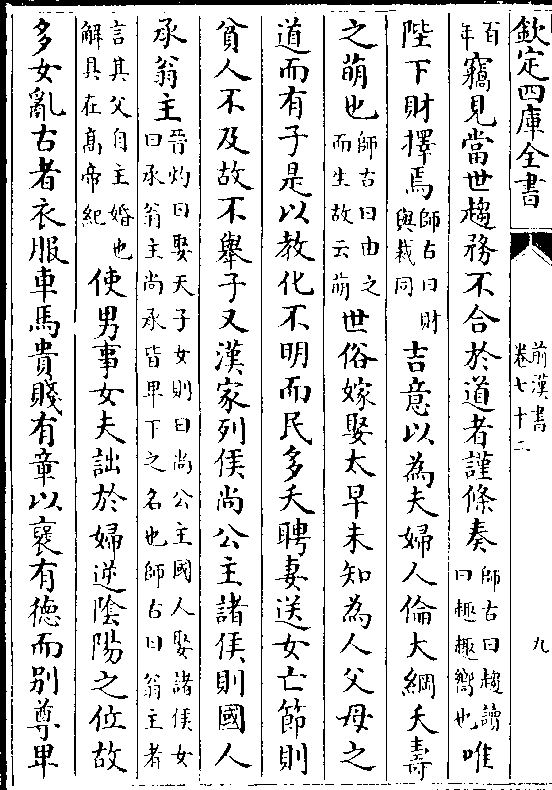 欽定四庫全書
前漢書
卷七十二
九
百年竊見當世趨務不合於道者謹條奏師古曰趨讀曰趣趣嚮也唯
陛下財擇焉師古曰財與裁同吉意以為夫婦人倫大綱夭壽
之萌也師古曰由之而生故云萌世俗嫁娶太早未知為人父母之
道而有子是以教化不明而民多夭聘妻送女亡節則
貧人不及故不舉子又漢家列侯尚公主諸侯則國人
承翁主晉灼曰娶天子女則曰尚公主國人娶諸侯女曰承翁主尚承皆卑下之名也師古曰翁主者
言其父自主婚也解具在髙帝紀使男事女夫詘於婦逆隂陽之位故
多女亂古者衣服車馬貴賤有章以襃有徳而别尊卑